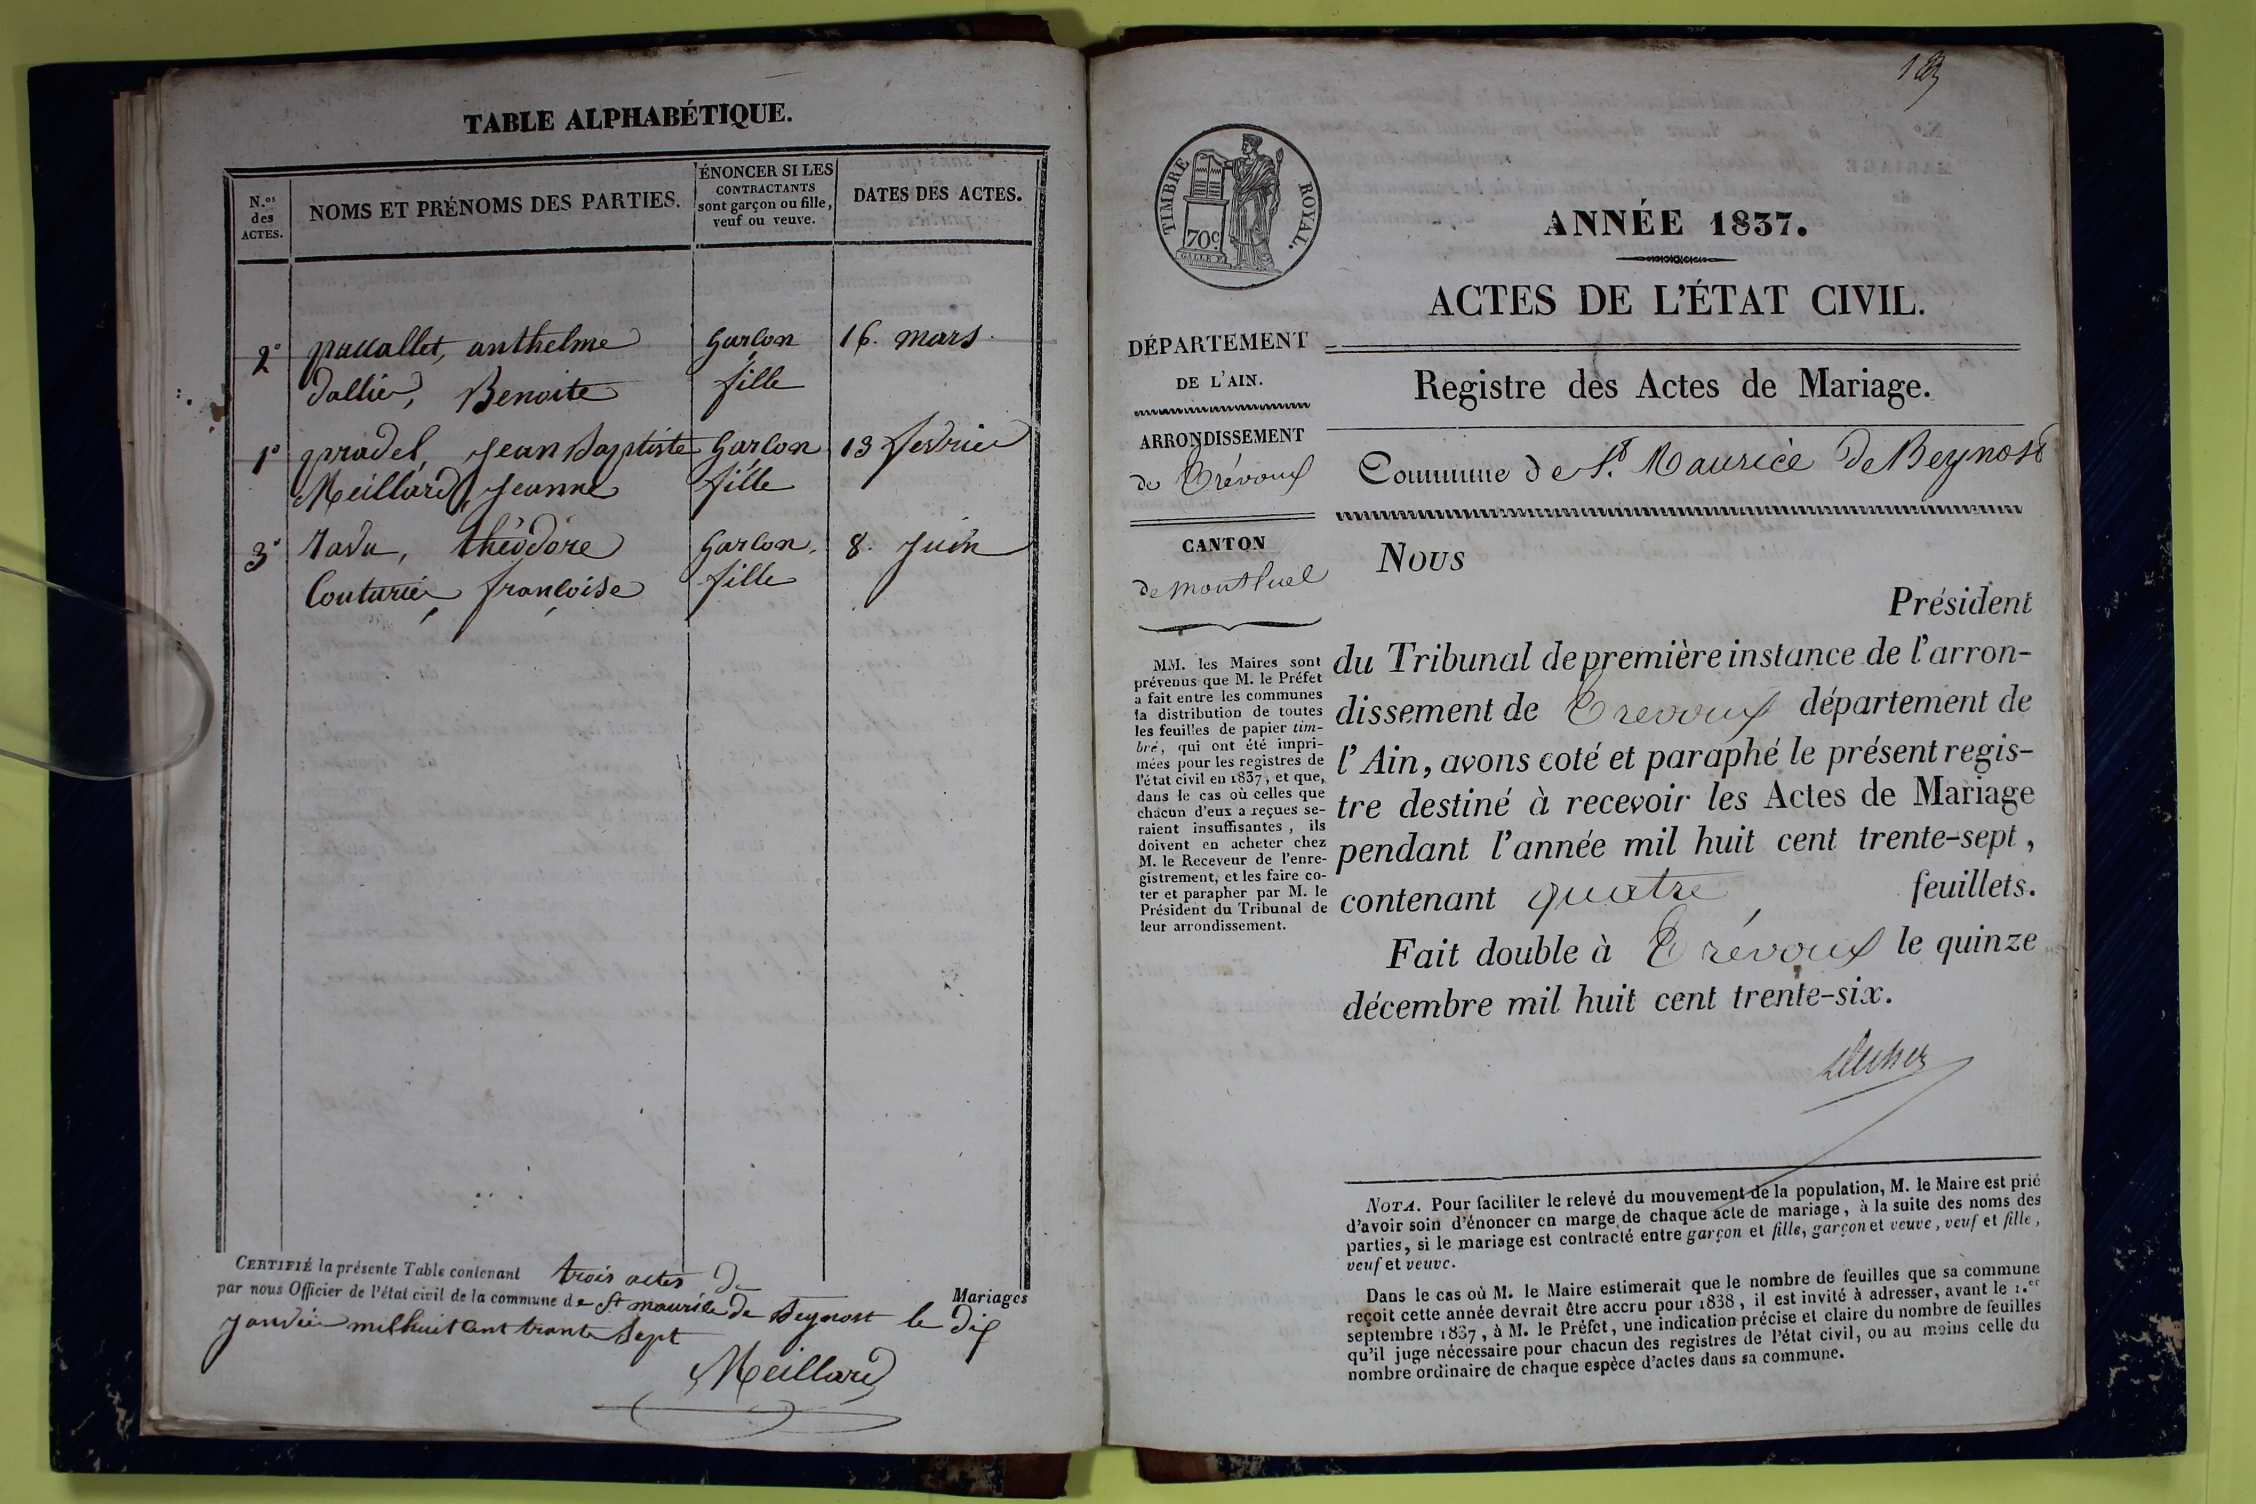 TABLE ALPHABÉTIQUE.
N.os des ACTES.
NOMS ET PRÉNOMS DES PARTIES.
ÉNONCER SI LES CONTRACTANTS sont garçon ou fille, veuf ou veuve.
DATES DES ACTES.
2° paccallet, anthelme garçon 16. mars
dallier, Benoite fille
1° pradel, jean Baptiste garçon 13 fevrier
Meillard, jeanne fille
3° ravu, théodore garçon, 8. juin
Couturier françoise fille
CERTIFIÉ la présente Table contenant trois actes de Mariages
par nous Officier de l'état civil de la commune de St maurice de Beynost le dix
janvier mil huit cent trente sept
Meillard
TIMBRE ROYAL.
70c
ANNÉE 1837.
ACTES DE L'ÉTAT CIVIL.
DÉPARTEMENT
DE L'AIN.
ARRONDISSEMENT
de Trévoux
CANTON
de montluel
MM. les Maires sont
prévenus que M. le Préfet
a fait entre les communes
la distribution de toutes
les feuilles de papier tim-
bré, qui ont été impri-
mées pour les registres de
l'état civil en 1837, et que,
dans le cas où celles que
chacun d'eux a reçues se-
raient insuffisantes, ils
doivent en acheter chez
M. le Receveur de l'enre-
gistrement, et les faire co-
ter et parapher par M. le
Président du Tribunal de
leur arrondissement.
Registre des Actes de Mariage.
Commune de St. Maurice de Beynost
Nous
Président
du Tribunal de première instance de l'arron-
dissement de Trevoux département de
l'Ain, avons coté et paraphé le présent regis-
tre destiné à recevoir les Actes de Mariage
pendant l'année mil huit cent trente-sept,
contenant quatre feuillets.
Fait double à Trévoux le quinze
décembre mil huit cent trente-six.
NOTA. Pour faciliter le relevé du mouvement de la population, M. le Maire est prié
d'avoir soin d'énoncer en marge de chaque acte de mariage, à la suite des noms des
parties, si le mariage est contracté entre garçon et fille, garçon et veuve, veuf et fille,
veuf et veuve.
Dans le cas où M. le Maire estimerait que le nombre de feuilles que sa commune
reçoit cette année devrait être accru pour 1838, il est invité à adresser, avant le 1.er
septembre 1837, à M. le Préfet, une indication précise et claire du nombre de feuilles
qu'il juge nécessaire pour chacun des registres de l'état civil, ou au moins celle du
nombre ordinaire de chaque espèce d'actes dans sa commune.